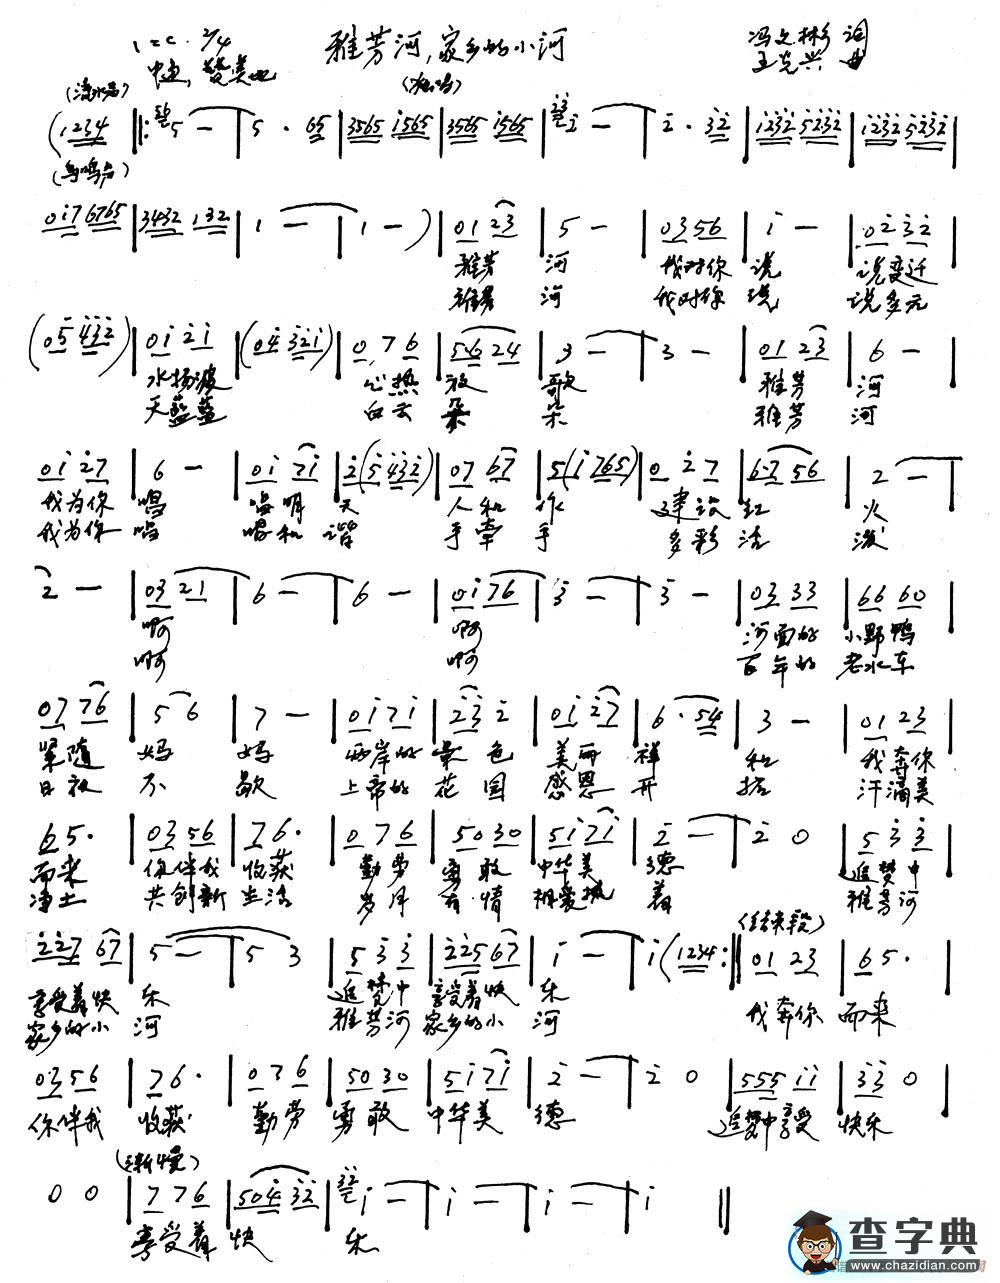 1=C 2/4
雅芳河,家乡的小河
冯文彬 词
中速,赞美地
王克兴 曲
(流水声) (独唱)
(1234 ‖: 5 — | 5 · 65 | 3565 i565 | 3565 i565 | 2 — | 2 · 32 | 1232 5232 | 1232 5232 |
(鸟鸣声)
0i7 6765 | 3432 132 | 1 — | 1 — ) | 01 23 | 5 — | 03 56 | i — | 02 32 |
雅芳 河 我对你 说 说变迁
雅芳 河 我对你 说 说多元
(05 432) | 0i 2i | (04 32i) | 0 7 6 | 56 24 | 3 — | 3 — | 01 23 | 6 — |
水扬波 心热 放 歌 雅芳 河
天蓝蓝 白云 朵 朵 雅芳 河
0i 27 | 6 — | 0i 7i | 2 (5 432) | 07 67 | 5 (i 765) | 0 2 7 | 67 56 | 2 — |
我为你 唱 唱明 天 人和 作 建设 红 火
我为你 唱 唱和 谐 手牵 手 多彩 活 泼
2 — | 03 21 | 6 — | 6 — | 0i 76 | 3 — | 3 — | 03 33 | 66 60 |
啊 啊 河面的 小野鸭
啊 啊 百年的 老水车
07 76 | 5 6 | 7 — | 0i 7i | 23 2 | 0i 27 | 6 · 54 | 3 — | 01 23 |
紧随 妈 妈 两岸的 景 色 美丽 祥 和 我奔你
日夜 不 歇 上帝的 花 园 感恩 开 拓 汗满美
65 · | 03 56 | 76 · | 0 7 6 | 50 30 | 5i 7i | 2 — | 2 0 | 5 3 3 |
而来 你伴我 收获 勤劳 勇敢 中华美 德 追梦中
净土 共创新 生活 岁月 有情 相爱 着 雅芳河
(结束段)
227 67 | 5 — | 5 3 | 5 3 3 | 225 67 | i — | i (1234 :‖ 01 23 | 65 · |
享受着快 乐 追梦中 享受着快 乐 我奔你 而来
家乡的小 河 雅芳河 家乡的小 河
03 56 | 76 · | 0 7 6 | 50 30 | 5i 7i | 2 — | 2 0 | 555 ii | 33 0 |
你伴我 收获 勤劳 勇敢 中华美 德 追梦中享受 快乐
(渐慢)
0 0 | 7 76 | 504 32 | i — | i — | i — | i ‖
享受着 快 乐
查字典
www.chazidian.com